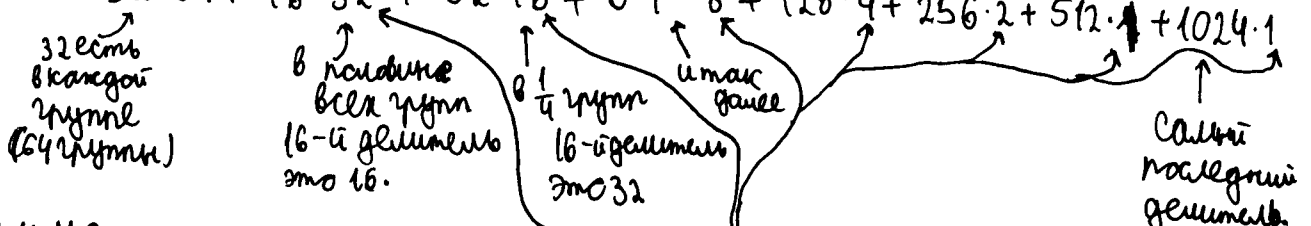 16·32 + 32·16 + 64·8 + 128·4 + 256·2 + 512·1 + 1024·1
32 есть
в каждой
группе
(64 группы)
в половине
всех групп
16-й делитель
это 16.
в 1/4 групп
16-й делитель
это 32
и так
далее
Самый
последний
делитель.